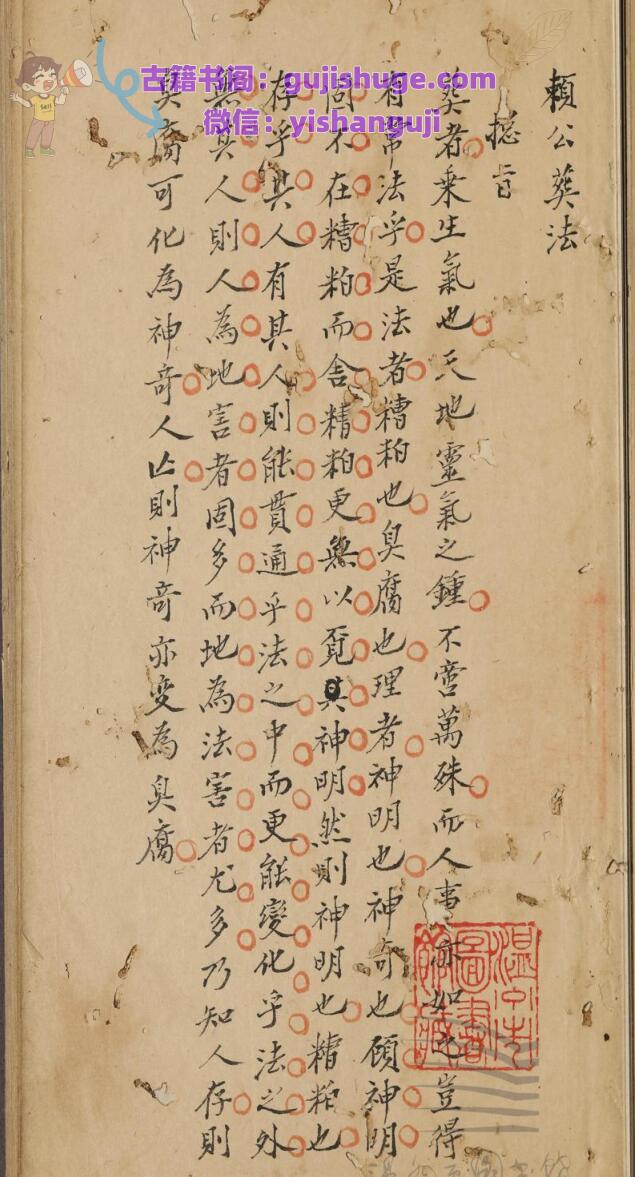 古籍书阁：gujishuge.com
微信：yishanguji
Sell
賴公葬法
摠旨
葬者乗生氣也天地靈氣之鍾不啻萬殊而人事亦如之豈得
有常法乎是法者糟粕也臭腐也理者神明也神奇也顾神明
固不在糟粕而舍精粕更無以覓其神明然則神明也糟粕也
存乎其人有其人則能貫通乎法之中而更能變化乎法之外
無其人則人為地害者固多而地為法害者尤多乃知人存則
臭腐可化為神奇人亾則神奇亦变為臭腐
温州市圖書館藏